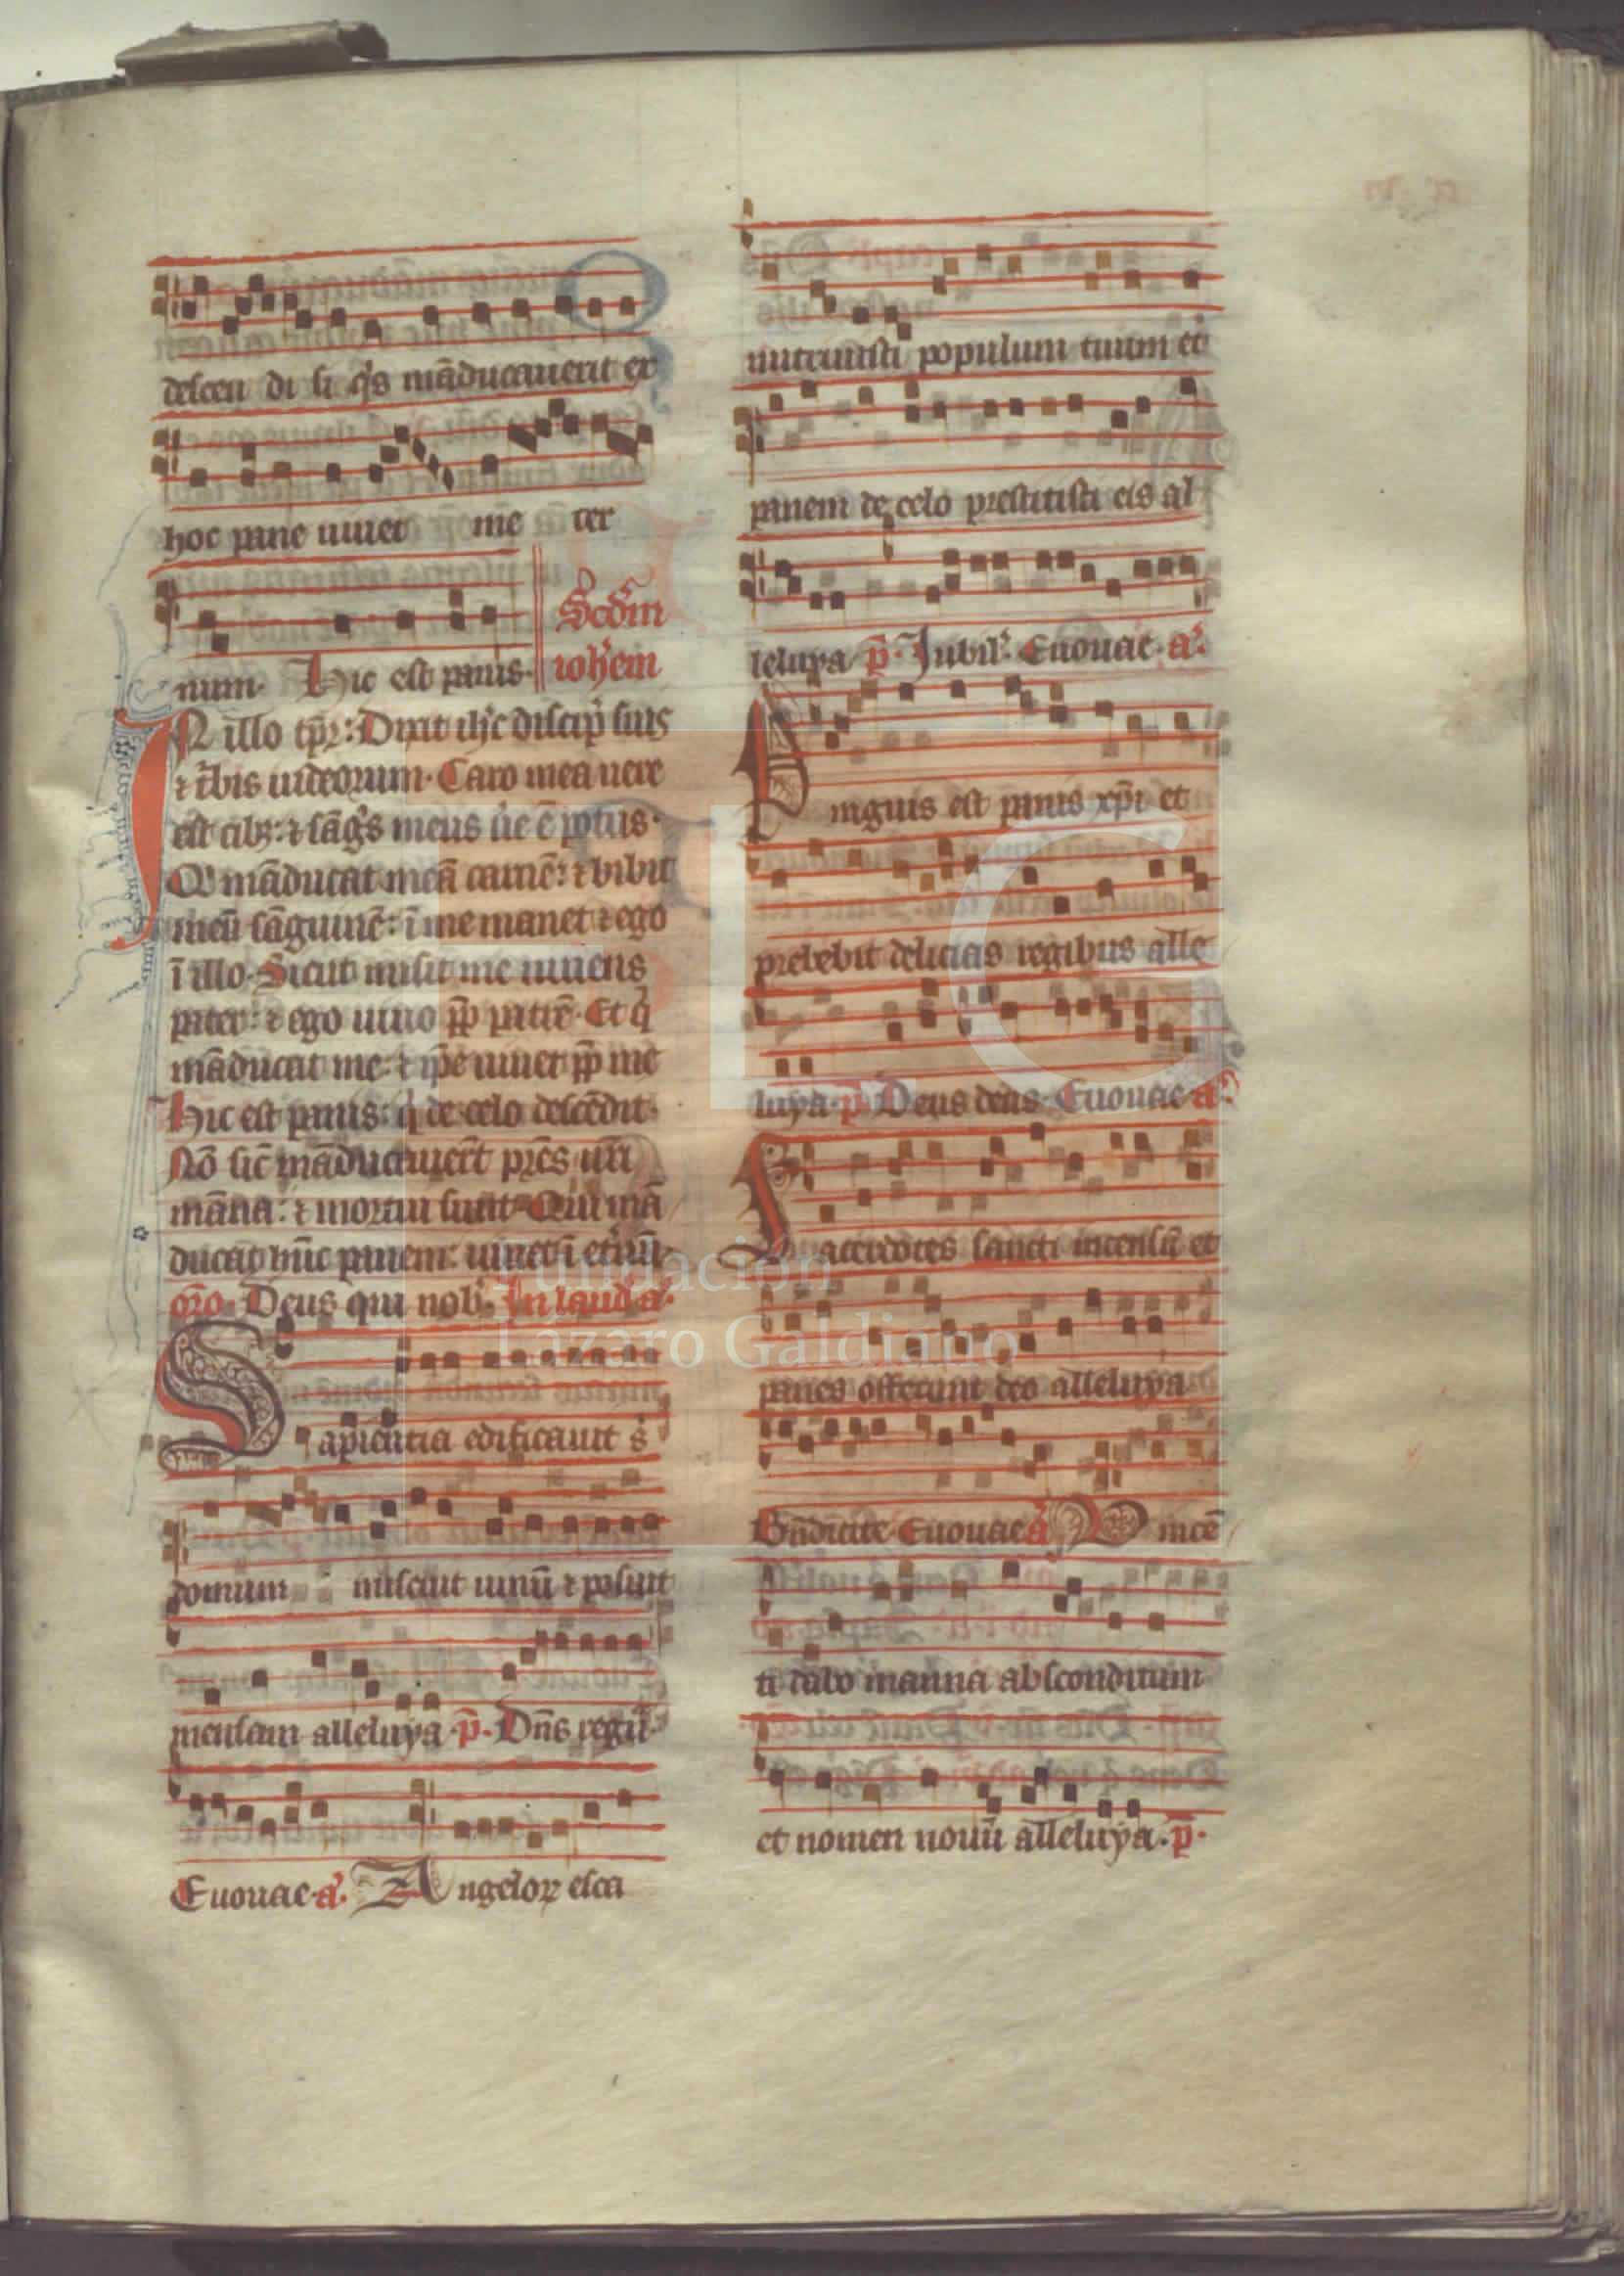 descen di si q̄s māducauerit ex
hoc pane uiuet me ter
num. Hic est panis.
Scd̄m
ioh̄em
IN illo tp̄r: Dixit ih̄c discip̄ suis
⁊ t̄bis iudeorum. Caro mea uere
est cibꝫ: ⁊ sāḡs meus ūe ē potus.
Q māducat meā carnē: ⁊ bibit
meū sāguinē: ī me manet ⁊ ego
ī illo. Sicut misit me uiuens
pater: ⁊ ego uiuo pp̄ patrē. Et q̄
māducat me: ⁊ ip̄e uiuet pp̄ me
Hic est panis: q̄ de celo descēdit.
Nō sic̄ māducauer̄t pr̄es ur̄i
māna: ⁊ mortui sunt. Qui mā
ducat hūc panem: uiuet ī et̄nū.
or̄o. Deus qui nob̄. In laud̄ a᷎.
Sapientia edificauit s̄
domum miscuit uinū ⁊ posuit
mensam alleluya. p̄. Dn̄s regū.
Euouae. a᷎. Angeloꝝ esca
nutriuisti populum tuum et
panem de celo prestitisti eis al
leluya p̄. Jubil᷎. Euouae. a᷎.
Pinguis est panis xp̄i et
prebebit delicias regibus alle
luya. p̄. Deus deus. Euouae. a᷎.
Sacerdotes sancti incensū et
panes offerunt deo alleluya
Bn̄dicite. Euouae a᷎ Uincē
ti dabo manna absconditum
et nomen nouū alleluya. p̄.
FLG
Fundación
Lázaro Galdiano